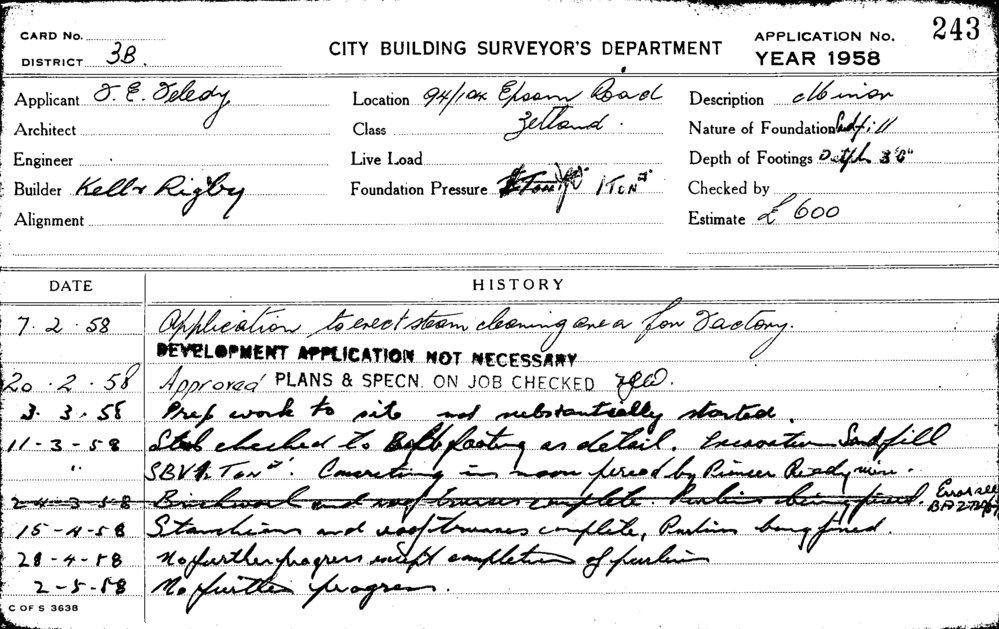 CARD No.
DISTRICT 3B.
CITY BUILDING SURVEYOR'S DEPARTMENT
APPLICATION No. 243
YEAR 1958
Applicant J. E. Teledy
Location 94/104 Epsom Road
Zetland.
Description Minor
Architect
Class
Nature of Foundation Sandfill
Engineer
Live Load
Depth of Footings Depth 3'6"
Builder Kell & Rigby
Foundation Pressure 1 Ton
Checked by
Alignment
Estimate £ 600
DATE HISTORY
7.2.58 Application to erect steam cleaning area for Factory.
DEVELOPMENT APPLICATION NOT NECESSARY
20.2.58 Approved PLANS & SPECN. ON JOB CHECKED
3.3.58 Prep work to site not substantially started.
11-3-58 Steel checked to footing as detail. Excavation Sandfill
" SBV Ton. Concreting in noon period by Pioneer Ready mix.
2-4-3-58 Brickwork and roof trusses complete. Purlins being fixed. Error see
BA
15-4-58 Stanchions and roof trusses complete, Purlins being fixed.
28-4-58 No further progress except completion of purlins
2-5-58 No further progress.
C OF S 3638